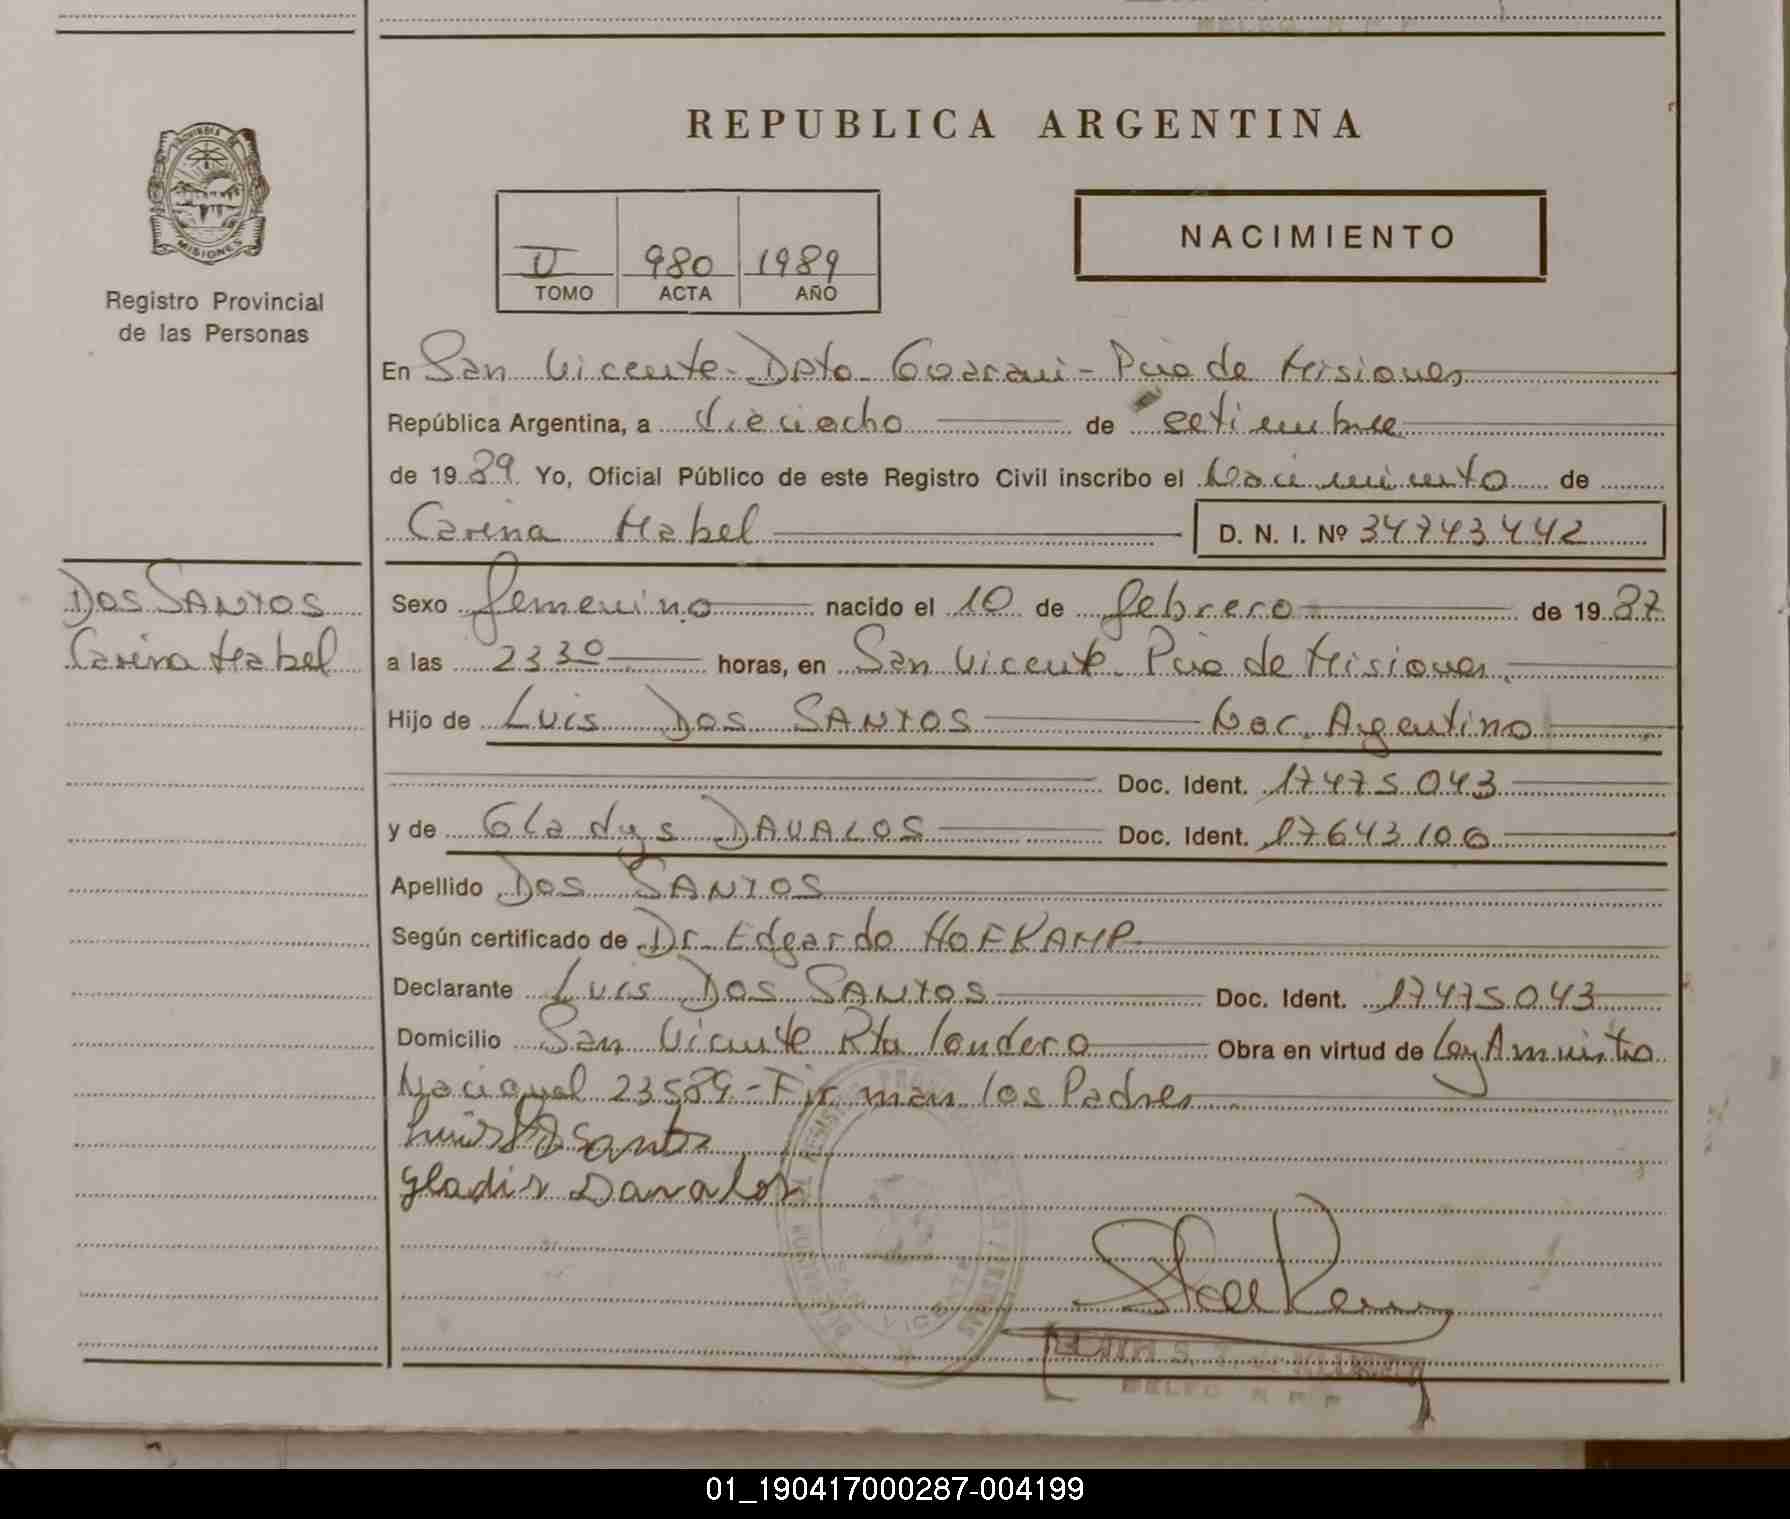 REPUBLICA ARGENTINA
PROVINCIA DE
MISIONES
Registro Provincial
de las Personas
V 980 1989
TOMO ACTA AÑO
NACIMIENTO
En San Vicente - Dpto Guarani - Pcia de Misiones
República Argentina, a dieciocho de setiembre
de 1989 Yo, Oficial Público de este Registro Civil inscribo el Nacimiento de
Carina Mabel D. N. I. Nº 34743442
DOS SANTOS
Carina Mabel
Sexo femenino nacido el 10 de febrero de 1987
a las 23 30 horas, en San Vicente Pcia de Misiones
Hijo de Luis DOS SANTOS Nac. Argentino
Doc. Ident. 17475043
y de Gladys DAVALOS Doc. Ident. 17643100
Apellido DOS SANTOS
Según certificado de Dr. Edgardo HOFKAMP
Declarante Luis DOS SANTOS Doc. Ident. 17475043
Domicilio San Vicente Rta Londero Obra en virtud de Ley Amnistia
Nacional 23589 - Firman los Padres
Luis D Santos
Gladis Davalos
01_190417000287-004199